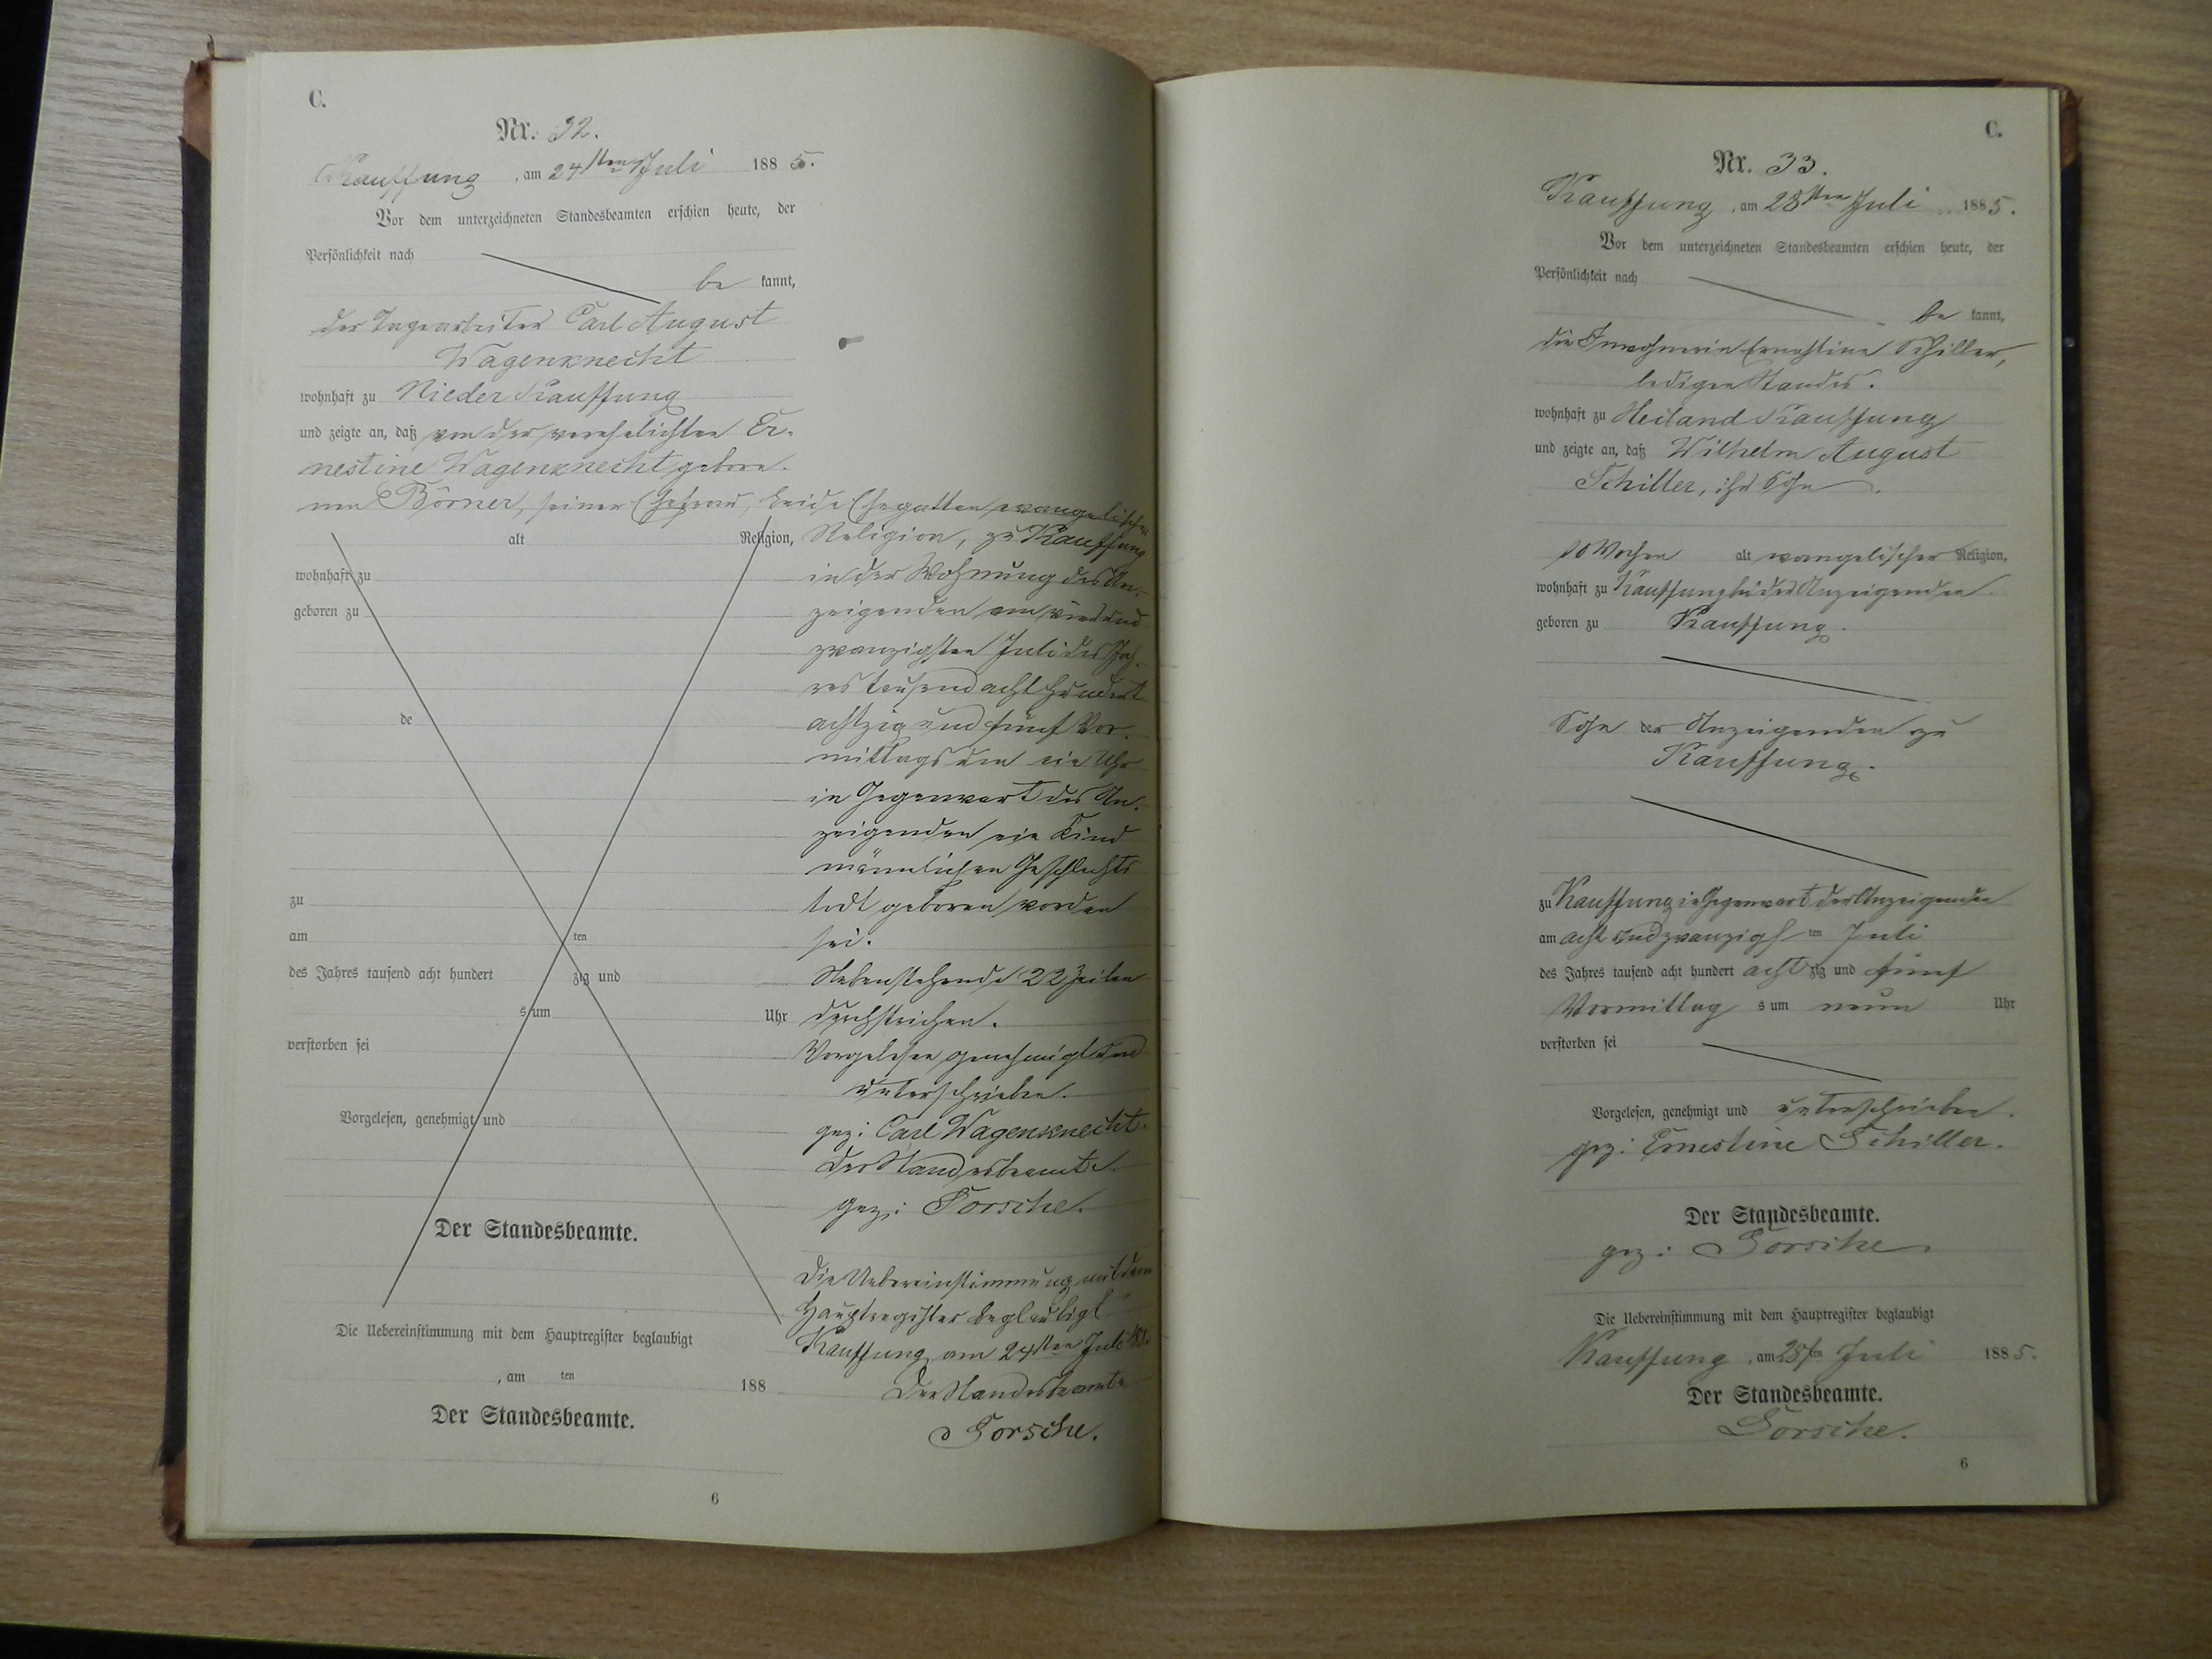 C.
Nr. 32.
Kauffung, am 24sten Juli 1885.
Vor dem unterzeichneten Standesbeamten erschien heute, der
Persönlichkeit nach
be kannt,
der Tagearbeiter Carl August
Wagenknecht
wohnhaft zu Nieder Kauffung
und zeigte an, daß von der verehelichten Er-
nestine Wagenknecht gebore-
nen Börner, seiner Ehefrau, beide Ehegatten evangelischer
alt Religion, Religion, zu Kauffung
wohnhaft zu in der Wohnung des An-
geboren zu zeigenden am vierund
zwanzigsten Juli des Jah-
res tausend acht hundert
de achtzig und fünf Vor-
mittags um ein Uhr
in Gegenwart des An-
zeigenden ein Kind
männlichen Geschlechts
zu todt geboren worden
am ten sei.
des Jahres tausend acht hundert zig und Nebenstehende 22 Zeilen
s um Uhr durchstrichen.
verstorben sei Vorgelesen genehmigt und
unterschrieben.
Vorgelesen, genehmigt und gez: Carl Wagenknecht.
Der Standesbeamte.
gez: Forsche.
Der Standesbeamte.
Die Uebereinstimmung mit dem
Hauptregister beglaubigt
Die Uebereinstimmung mit dem Hauptregister beglaubigt Kauffung am 24sten Juli
, am ten 188 Der Standesbeamte
Der Standesbeamte. Forsche.
6
C.
Nr. 33.
Kauffung, am 28sten Juli 1885.
Vor dem unterzeichneten Standesbeamten erschien heute, der
Persönlichkeit nach
be kannt,
die Inwohnerin Ernestine Schiller,
ledigen Standes.
wohnhaft zu Heiland Kauffung
und zeigte an, daß Wilhelm August
Schiller, ihr Sohn
10 Wochen alt evangelischer Religion,
wohnhaft zu Kauffung bei der Anzeigenden
geboren zu Kauffung.
Sohn der Anzeigenden zu
Kauffung.
zu Kauffung in Gegenwart der Anzeigenden
am acht und zwanzigsten Juli
des Jahres tausend acht hundert achtzig und fünf
Vormittag s um neun Uhr
verstorben sei
Vorgelesen, genehmigt und unterschrieben.
gez: Ernestine Schiller.
Der Standesbeamte.
gez: Forsche
Die Uebereinstimmung mit dem Hauptregister beglaubigt
Kauffung, am 28sten Juli 1885.
Der Standesbeamte.
Forsche.
6